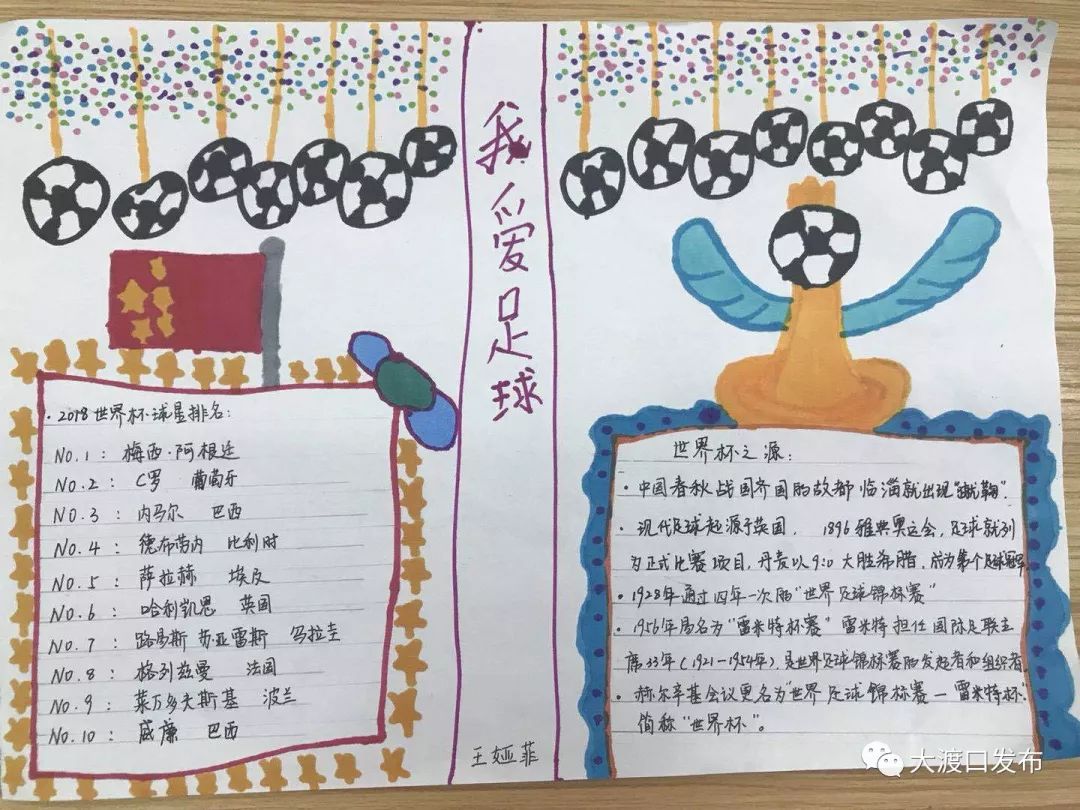 我爱足球
·2018世界杯·球星排名:
NO.1: 梅西·阿根廷
NO.2: C罗 葡萄牙
NO.3: 内马尔 巴西
NO.4: 德布劳内 比利时
NO.5: 萨拉赫 埃及
NO.6: 哈利凯恩 英国
NO.7: 路易斯 苏亚雷斯 乌拉圭
NO.8: 格列兹曼 法国
NO.9: 莱万多夫斯基 波兰
NO.10: 威廉 巴西
王娅菲
世界杯之源:
·中国春秋战国齐国的故都临淄就出现"蹴鞠".
·现代足球起源于英国. 1896雅典奥运会,足球就列
为正式比赛项目,丹麦以9:0大胜希腊.成为第个足球冠军
·1928年通过四年一次的"世界足球锦标赛"
·1956年易名为"雷米特杯赛"雷米特担任国际足联主
席33年(1921—1954年).是世界足球锦标赛的发起者和组织者.
·赫尔辛基会议更名为"世界足球锦标赛—雷米特杯".
简称"世界杯"。
大渡口发布